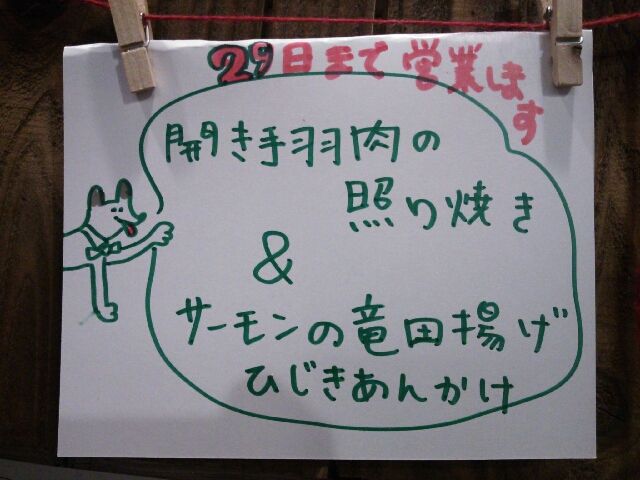 29日まで営業します
開き手羽肉の
照り焼き
&
サーモンの竜田揚げ
ひじきあんかけ